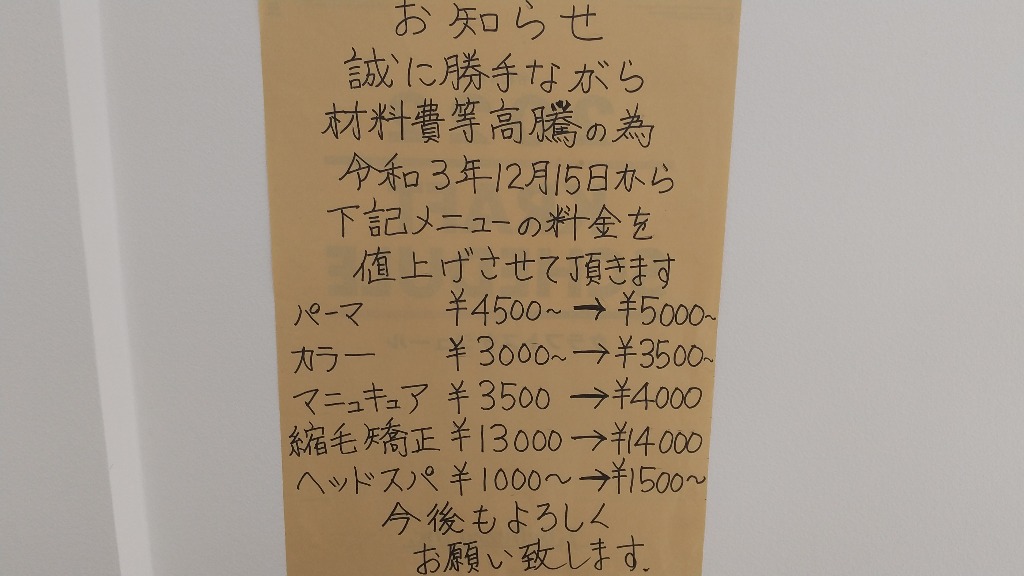 お知らせ
誠に勝手ながら
材料費等高騰の為
令和3年12月15日から
下記メニューの料金を
値上げさせて頂きます
パーマ ¥4500~→¥5000~
カラー ¥3000~→¥3500~
マニュキュア ¥3500→¥4000
縮毛矯正 ¥13000→¥14000
ヘッドスパ ¥1000~→¥1500~
今後もよろしく
お願い致します.